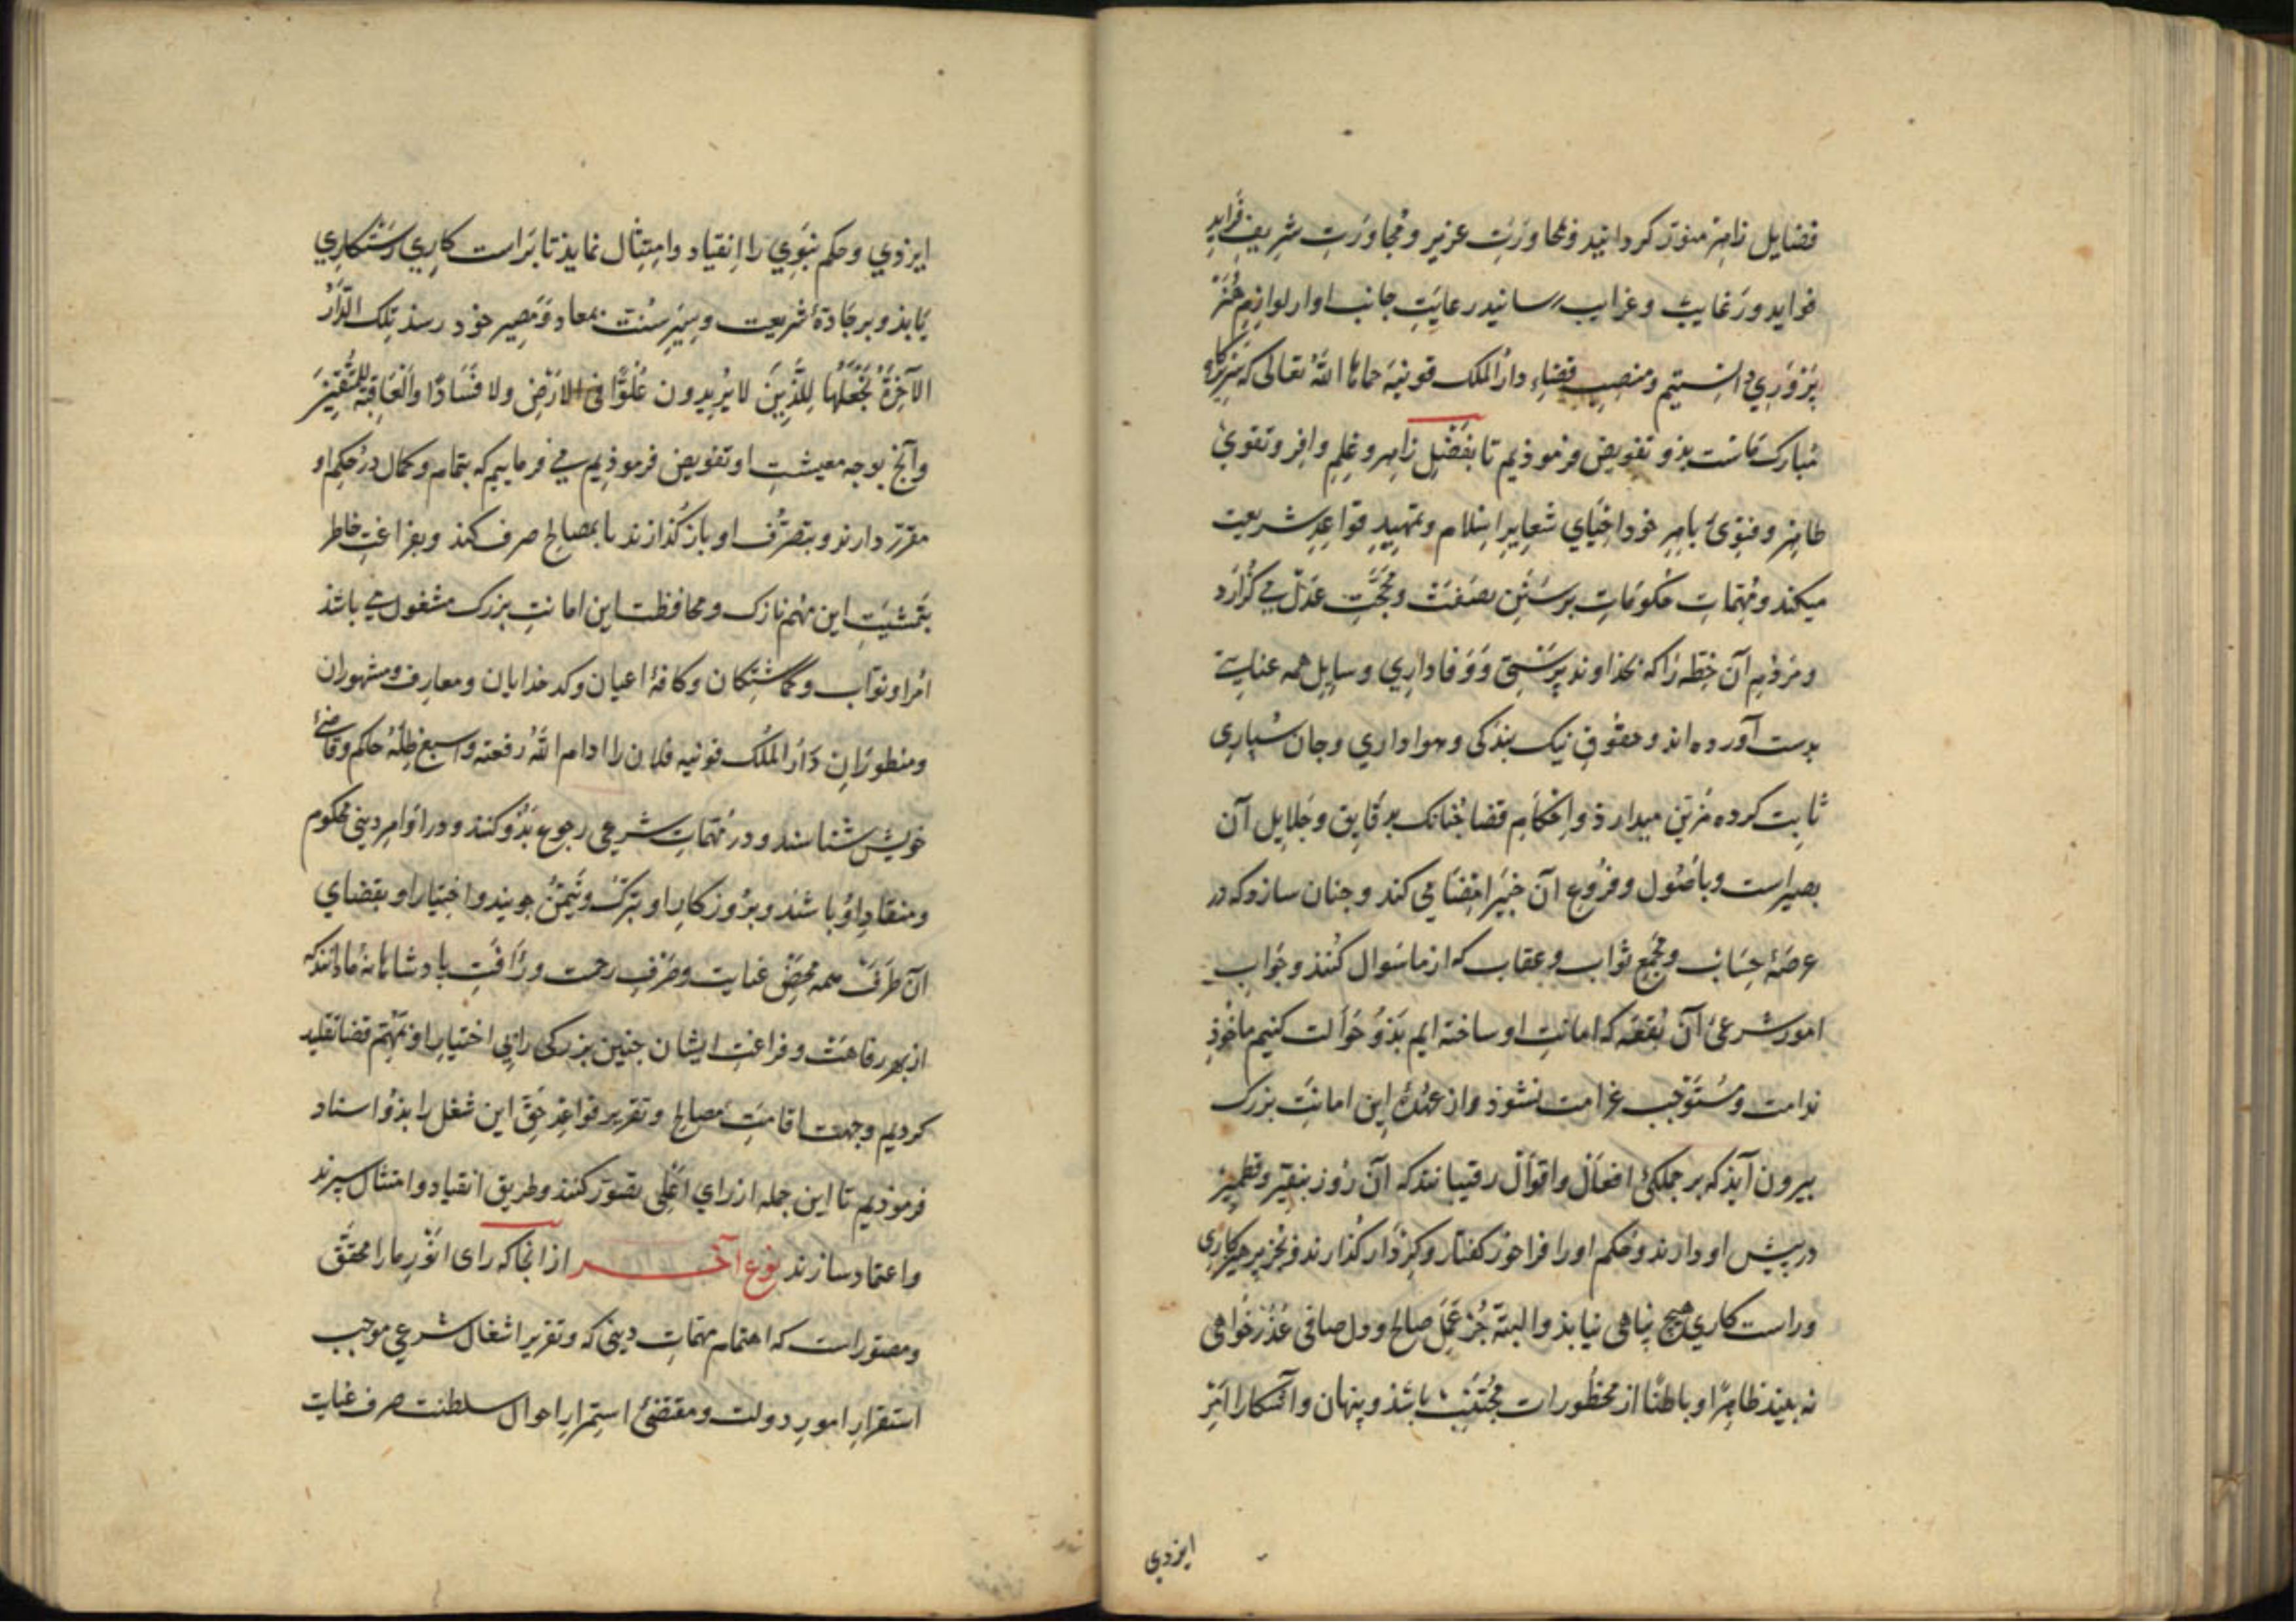 فضایل زاهر منوّر کردانید و محاورتِ عزیز و مجاورتِ شریف فراید
فواید و رغایب و غرایب رسانید رعایتِ جانب او از لوازم هنر
پَرْوَری دانستیم و منصبِ قضاءِ دار الملک قونیه حماها الله تعالی که سریرگاه
مبارک ماست بذو تفویض فرموذیم تا بفضلِ زاهر و علمِ وافر و تقویِ
طاهر و فتویِ باهر خود احیای شعایرِ اسلام و تمهیدِ قواعدِ شریعت
میکند و مهمّات حکومات بر سَنَنِ نصفت و محجّتِ عدل می گزارد
و مردمِ آن خطّه را که بخذاوند پرستی و وفاداری وسایل همه عنایت
بدست آورده اند و حقوقِ نیک بندکی و هواداری و جان سپاری
ثابت کرده مزیّن میدارذ و احکامِ قضا جنانک بدقایق و جلایل آن
بصیر است و باصول و فروع آن خبیر امضا می کند و جنان سازد که در
عرصۀ حساب و مجمع ثواب و عقاب که از ما سوال کنند و جواب
امور شرعی آن بقعه که امانتِ او ساخته ایم بذو حوالت کنیم ماخوذِ
ندامت و مستوجب غرامت نشوذ و از عهدۀ این امانتِ بزرک
بیرون آیذ که بر جملکیِ افعال و اقوال رقیبانند که آن روز بنقیر و قطمیر
در پیش او دارند و حکم او را فراخور کفتار و کردار کذارند و بجز پرهیزکاری
و راست کاری هیچ پناهی نیابذ و البته جز عملِ صالح و دل صافی عذرخواهی
نه بیند ظاهرًا و باطنًا از محظورات مجتنب باشذ و پنهان و آشکارا امر
ایزدی
ایزذی و حکم نبوی را انقیاد و امتثال نمایذ تا براست کاری رستکاری
یابذ و بر جادۀ شریعت و سیرِ سنّت بمعاد و مصیر خود رسذ تِلکَ الدَّارُ
الآخِرَةُ نَجْعَلُهَا لِلَّذِینَ لا یُرِیدُون عُلُوًّا فی الاَرْضِ ولا فَسَادًا وَالْعَاقِبَةُ لِلْمُتَّقِینَ
و آنچ بوجه معیشتِ او تفویض فرموذیم می فرماییم که بتمام و کمال در حکم او
مقرّر دارند و بتصرّف او باز کذارند تا بمصالح صرف کند و بفراغتِ خاطر
بتمشیتِ این مهمّ نازک و محافظت این امانتِ بزرک مشغول می باشذ
امرا و نوّاب و کماشتکان و کافۀ اعیان و کدخدایان و معارف و مشهوران
و منظورانِ دار الملک قونیه فلان را ادام الله رفعته واسبغ ظلّه حاکم و قاضیِ
خویش شناسند و در مهمّاتِ شرعی رجوع بذو کنند و در اوامر دینی محکوم
و منقادِ او باشند و بروز کارِ او تبرّک و تیمّن جویند و اختیار او بقضای
آن طرف همه محضِ عنایت و صرفِ رحمت و رأفتِ پادشاهانۀ ما دانند که
از بهر رفاهت و فراغتِ ایشان جنین بزرکی را بی اختیارِ او بمهمّ قضا تقلید
کردیم و جهت اقامتِ مصالح و تقریر قواعدِ حق این شغل را بذو اسناد
فرموذیم تا این جمله از رای اعلی تصوّر کنند و طریق انقیاد و امتثال سپرند
و اعتماد سازند نوع آخر از انجا که رای انورِ ما را محقّق
و مصوّر است که اهتمام مهمّاتِ دینی که و تقریر اشغال شرعی موجب
استقرارِ امورِ دولت و مقتضیِ استمرارِ احوال سلطنت صرف عنایت